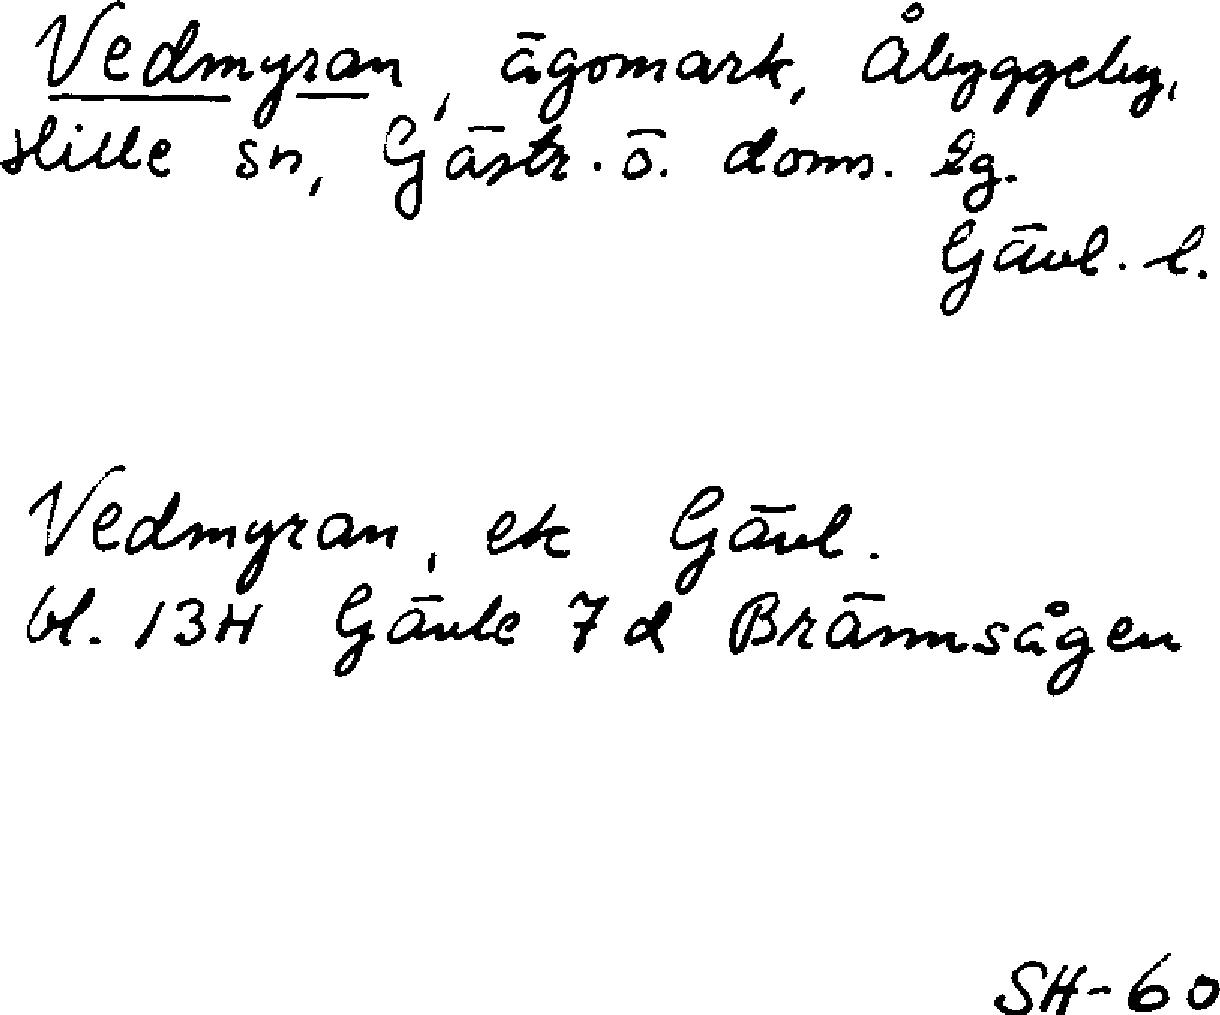 Vedmyran, ägomark, Åbyggeby,
Hille sn, Gästr. ö. doms. lg.
Gävl. l.
Vedmyran, ek Gävl.
bl. 13H Gävle 7d Brännsågen
SH-60